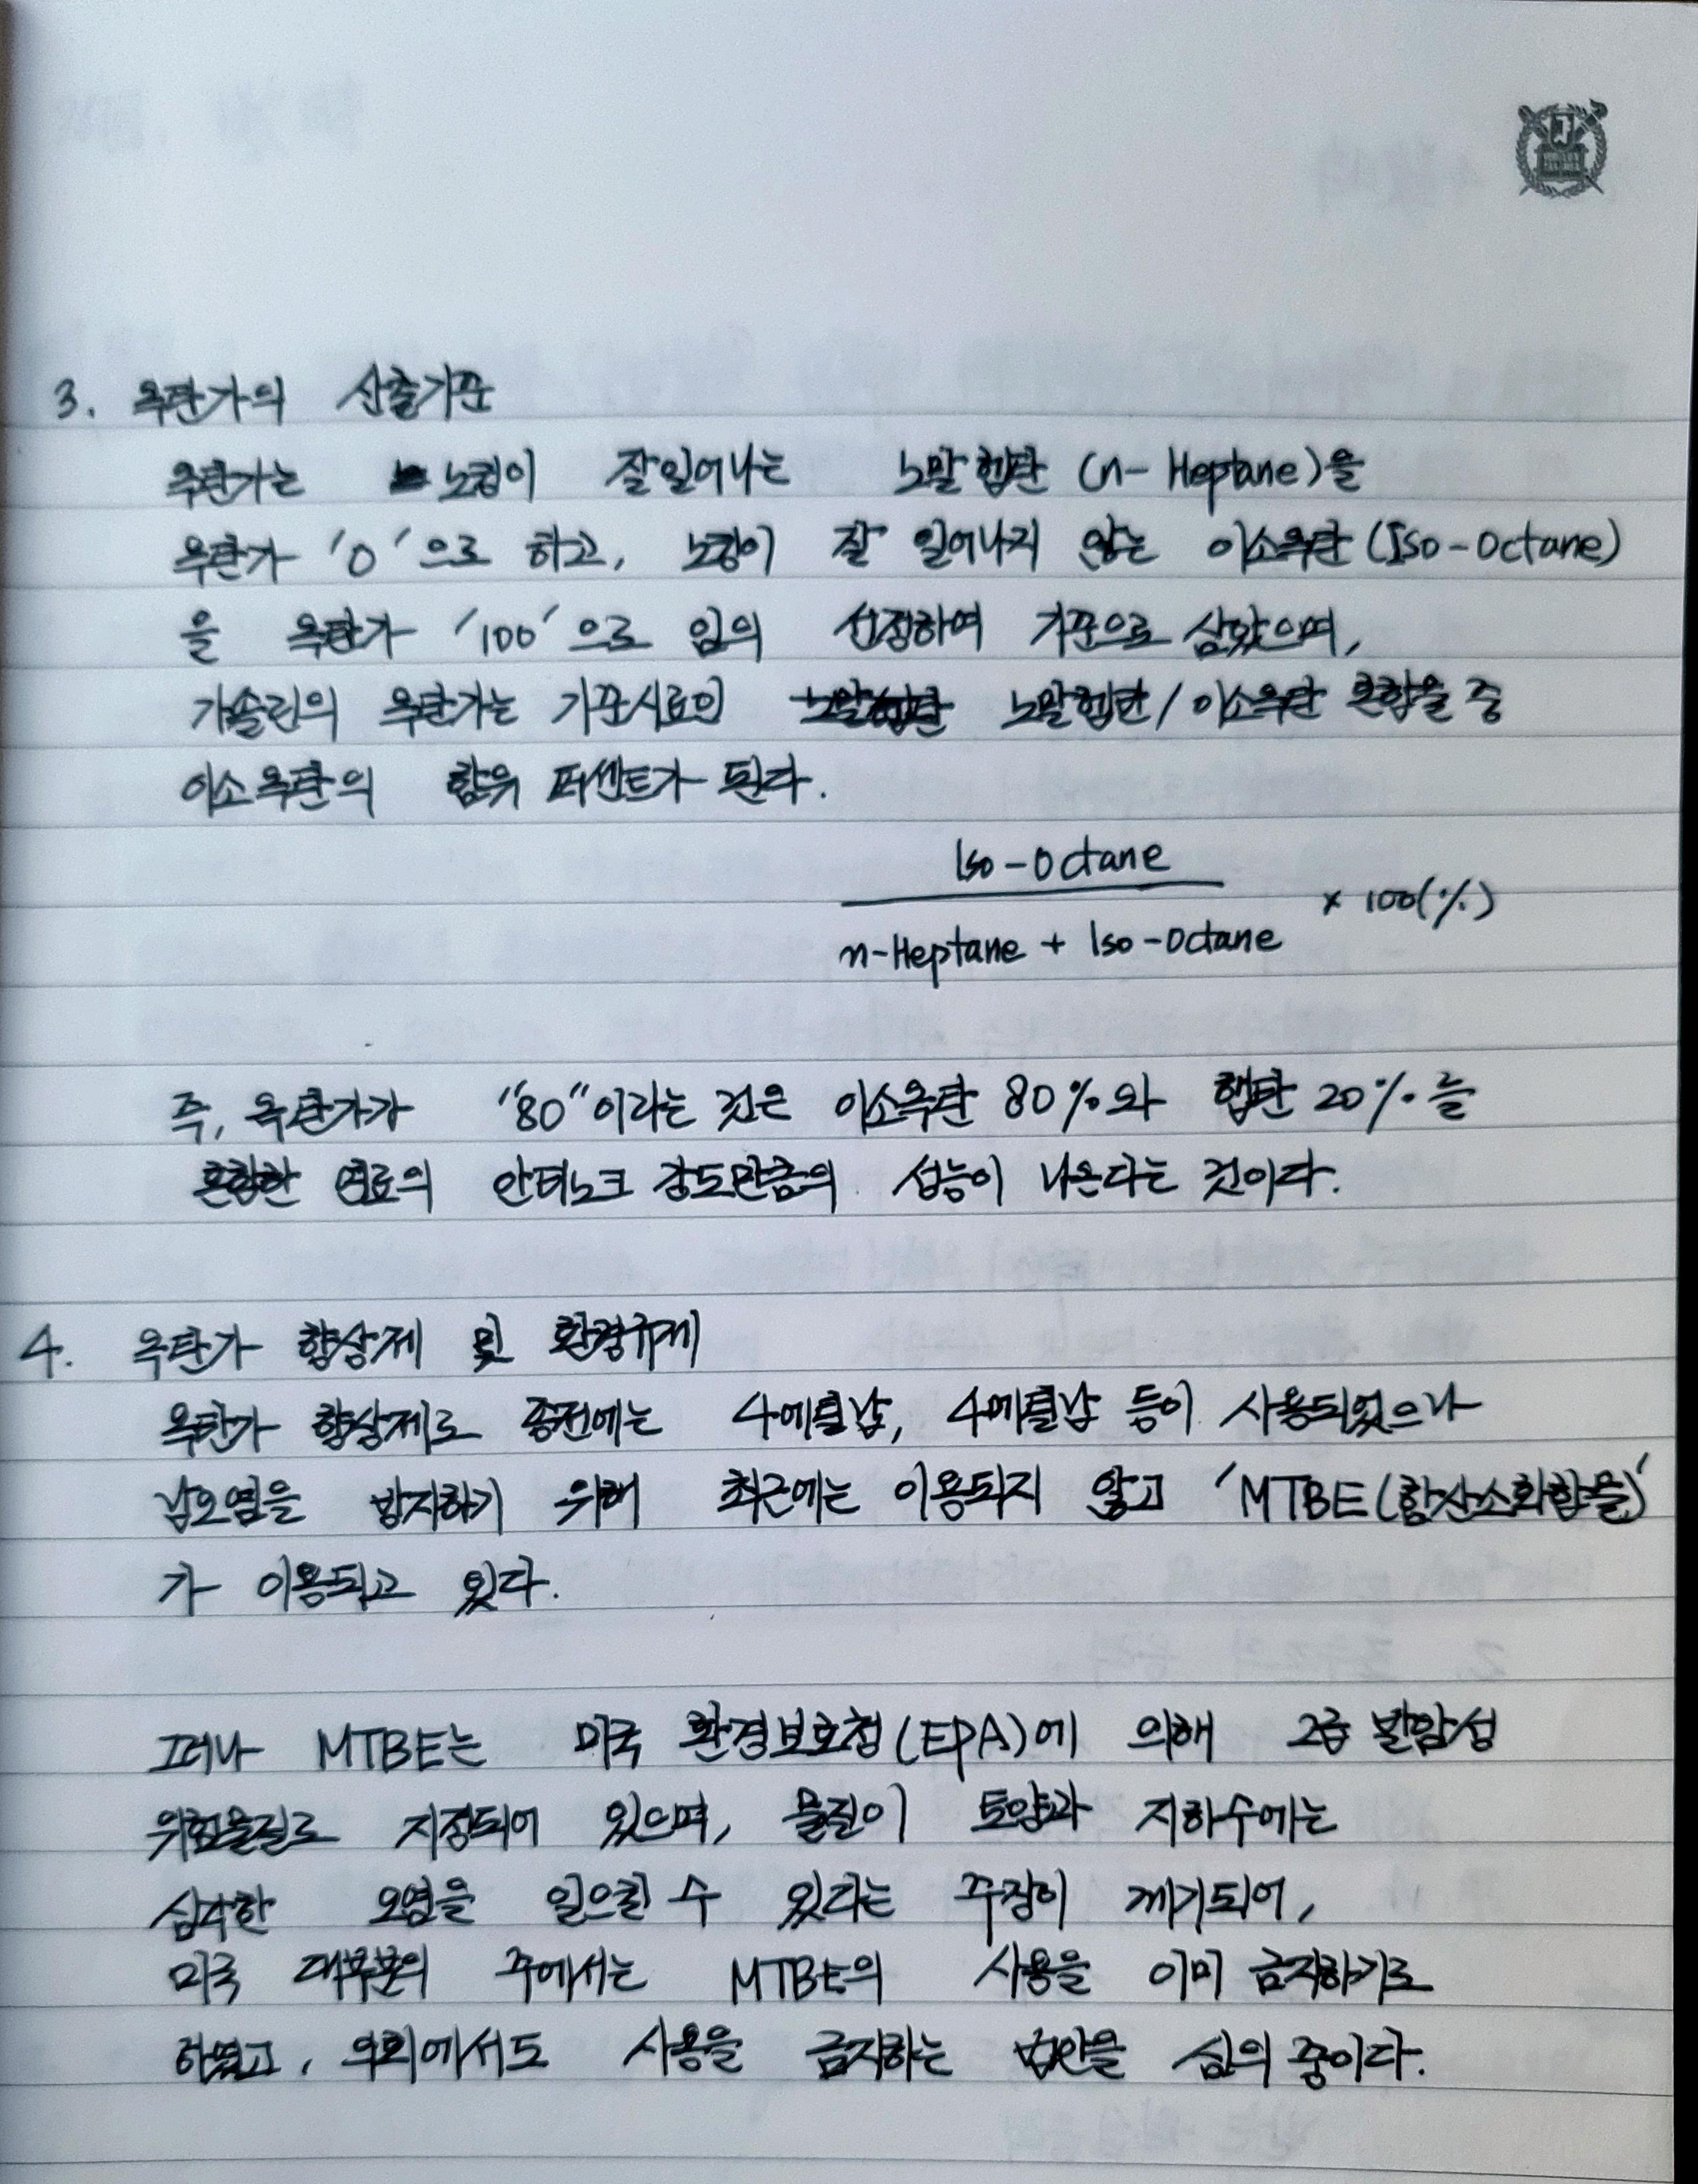 3. 옥탄가의 산출기준
옥탄가는 노킹이 잘일어나는 노말헵탄 (n-Heptane)을
옥탄가 '0'으로 하고, 노킹이 잘 일어나지 않는 이소옥탄(Iso-Octane)
을 옥탄가 '100'으로 임의 선정하여 기준으로 삼았으며,
가솔린의 옥탄가는 기준시료인 노말헵탄/이소옥탄 혼합율 중
이소옥탄의 함유 퍼센트가 된다.
Iso-Octane
n-Heptane + Iso-Octane × 100(%)
즉, 옥탄가가 "80"이라는 것은 이소옥탄 80%와 햅탄 20%를
혼합한 연료의 안티노크 강도만큼의 성능이 나온다는 것이다.
4. 옥탄가 향상제 및 환경규제
옥탄가 향상제로 종전에는 4에틸납, 4메틸납 등이 사용되었으나
납오염을 방지하기 위해 최근에는 이용되지 않고 'MTBE(함산소화합물)'
가 이용되고 있다.
그러나 MTBE는 미국 환경보호청(EPA)에 의해 2급 발암성
위험물질로 지정되어 있으며, 물질이 토양과 지하수에는
심각한 오염을 일으킬 수 있다는 주장이 제기되어,
미국 대부분의 주에서는 MTBE의 사용을 이미 금지하기로
하였고, 의회에서도 사용을 금지하는 법안을 심의 중이다.